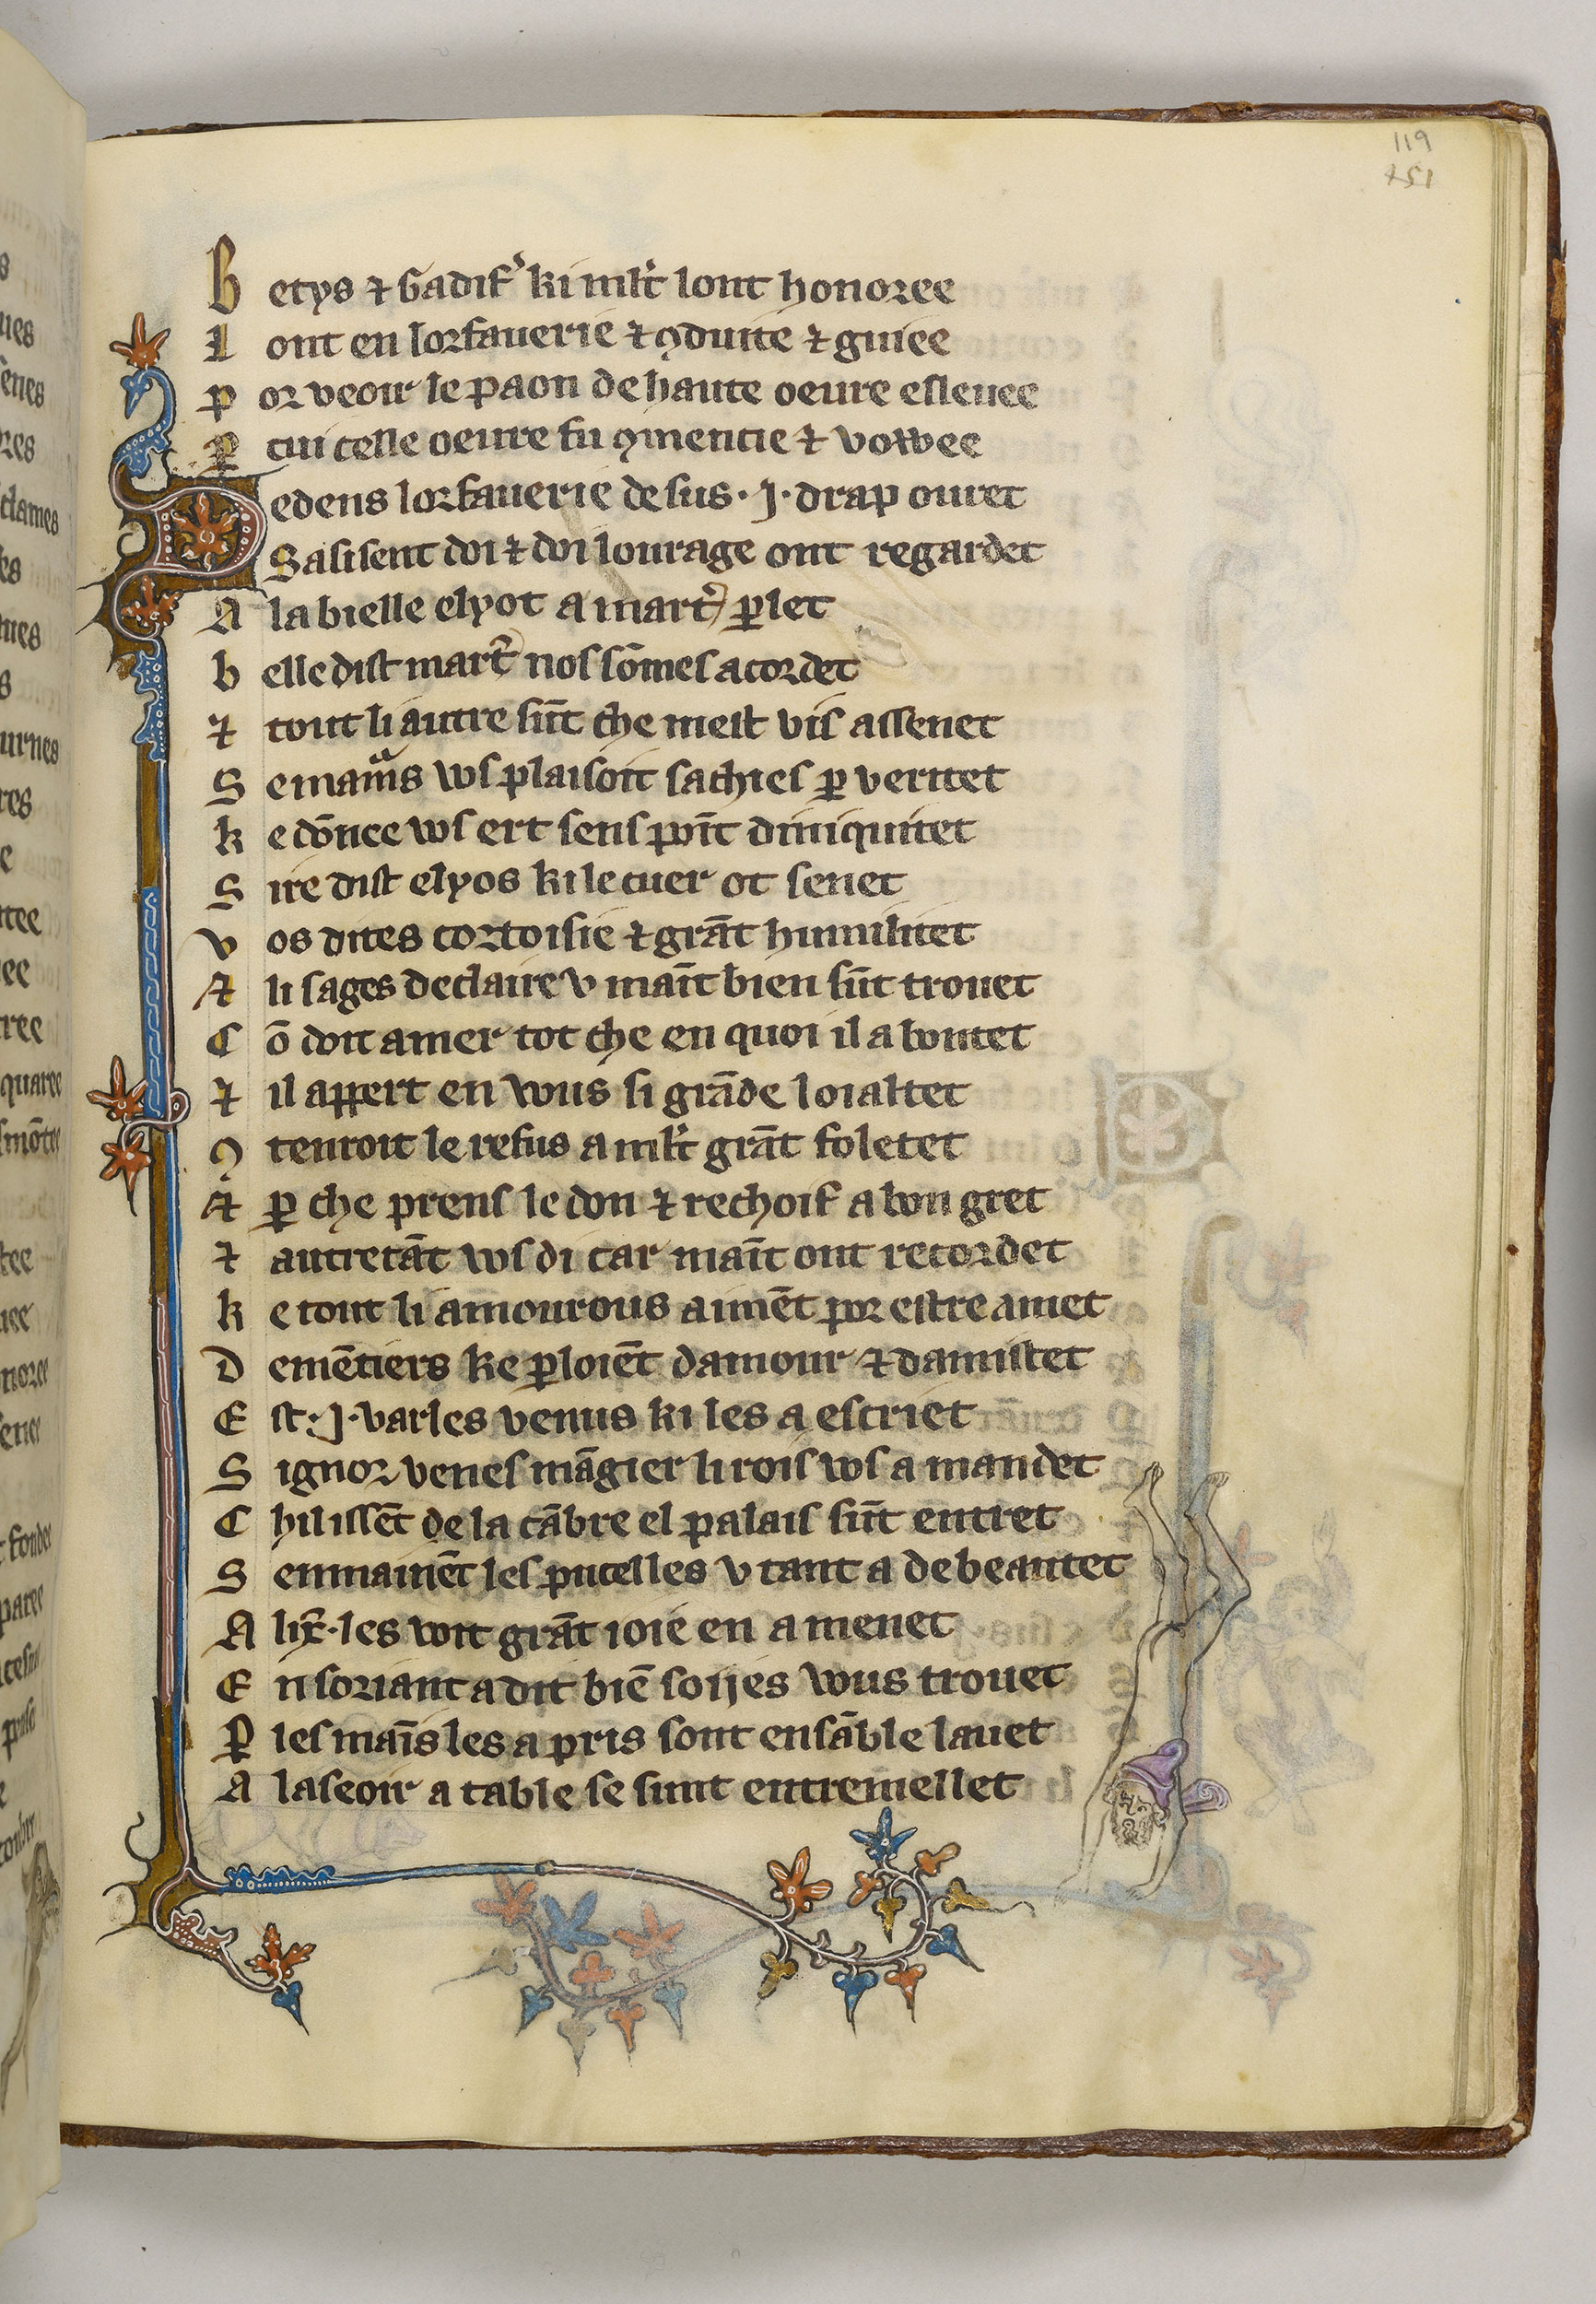 119
151
Betys ⁊ Gadif᾽ ki ml̄t lont honoree
Lont en lorfauerie ⁊ ꝯduite ⁊ guiee
Por veoir le paon de haute oeure esleuee
Ꝑ cui celle oeure fu ꝯmencie ⁊ vowee
Dedens lorfauerie desus · J · drap ouuret
Sasisent doi ⁊ doi lourage ont regardet
A la bielle elyot a mart᾽ ꝑlet
belle dist mart᾽ nos sōmes acordet
⁊ tout li autre sūt che mest vis assenet
Se mamͣs vos plaisoit sachies ꝑ veritet
ke dōnee vos ert sens point diniquitet
Sire dist elyos ki le cuer ot senet
vos dites cortoisie ⁊ grāt humilitet
A li sages declaire v maīt bien sūt trouet
Cō doit amer tot che en quoi il a bontet
⁊ il appert en vous si grāde loialtet
ꝯ tenroit le refus a ml̄t grāt foletet
A ꝑ che prens le don ⁊ rechoif a bon gret
⁊ autretāt vos di car maīt ont recordet
ke tout li amourous aimēt por estre amet
Demētiers ke ꝑloiēt damour ⁊ damistet
Est · J · varles venus ki les a escriet
Signor venes māgier li rois vos a mandet
Chil issēt de la cābre el palais sūt entret
Senmainēt les pucelles v tant a de beautet
Alix̄ · les voit grāt ioie en a menet
En soriant a dit biē soijes vous trouet
Ꝑ les maīs les a pris sont ensāble lauet
A laseoir a table se sunt entremellet